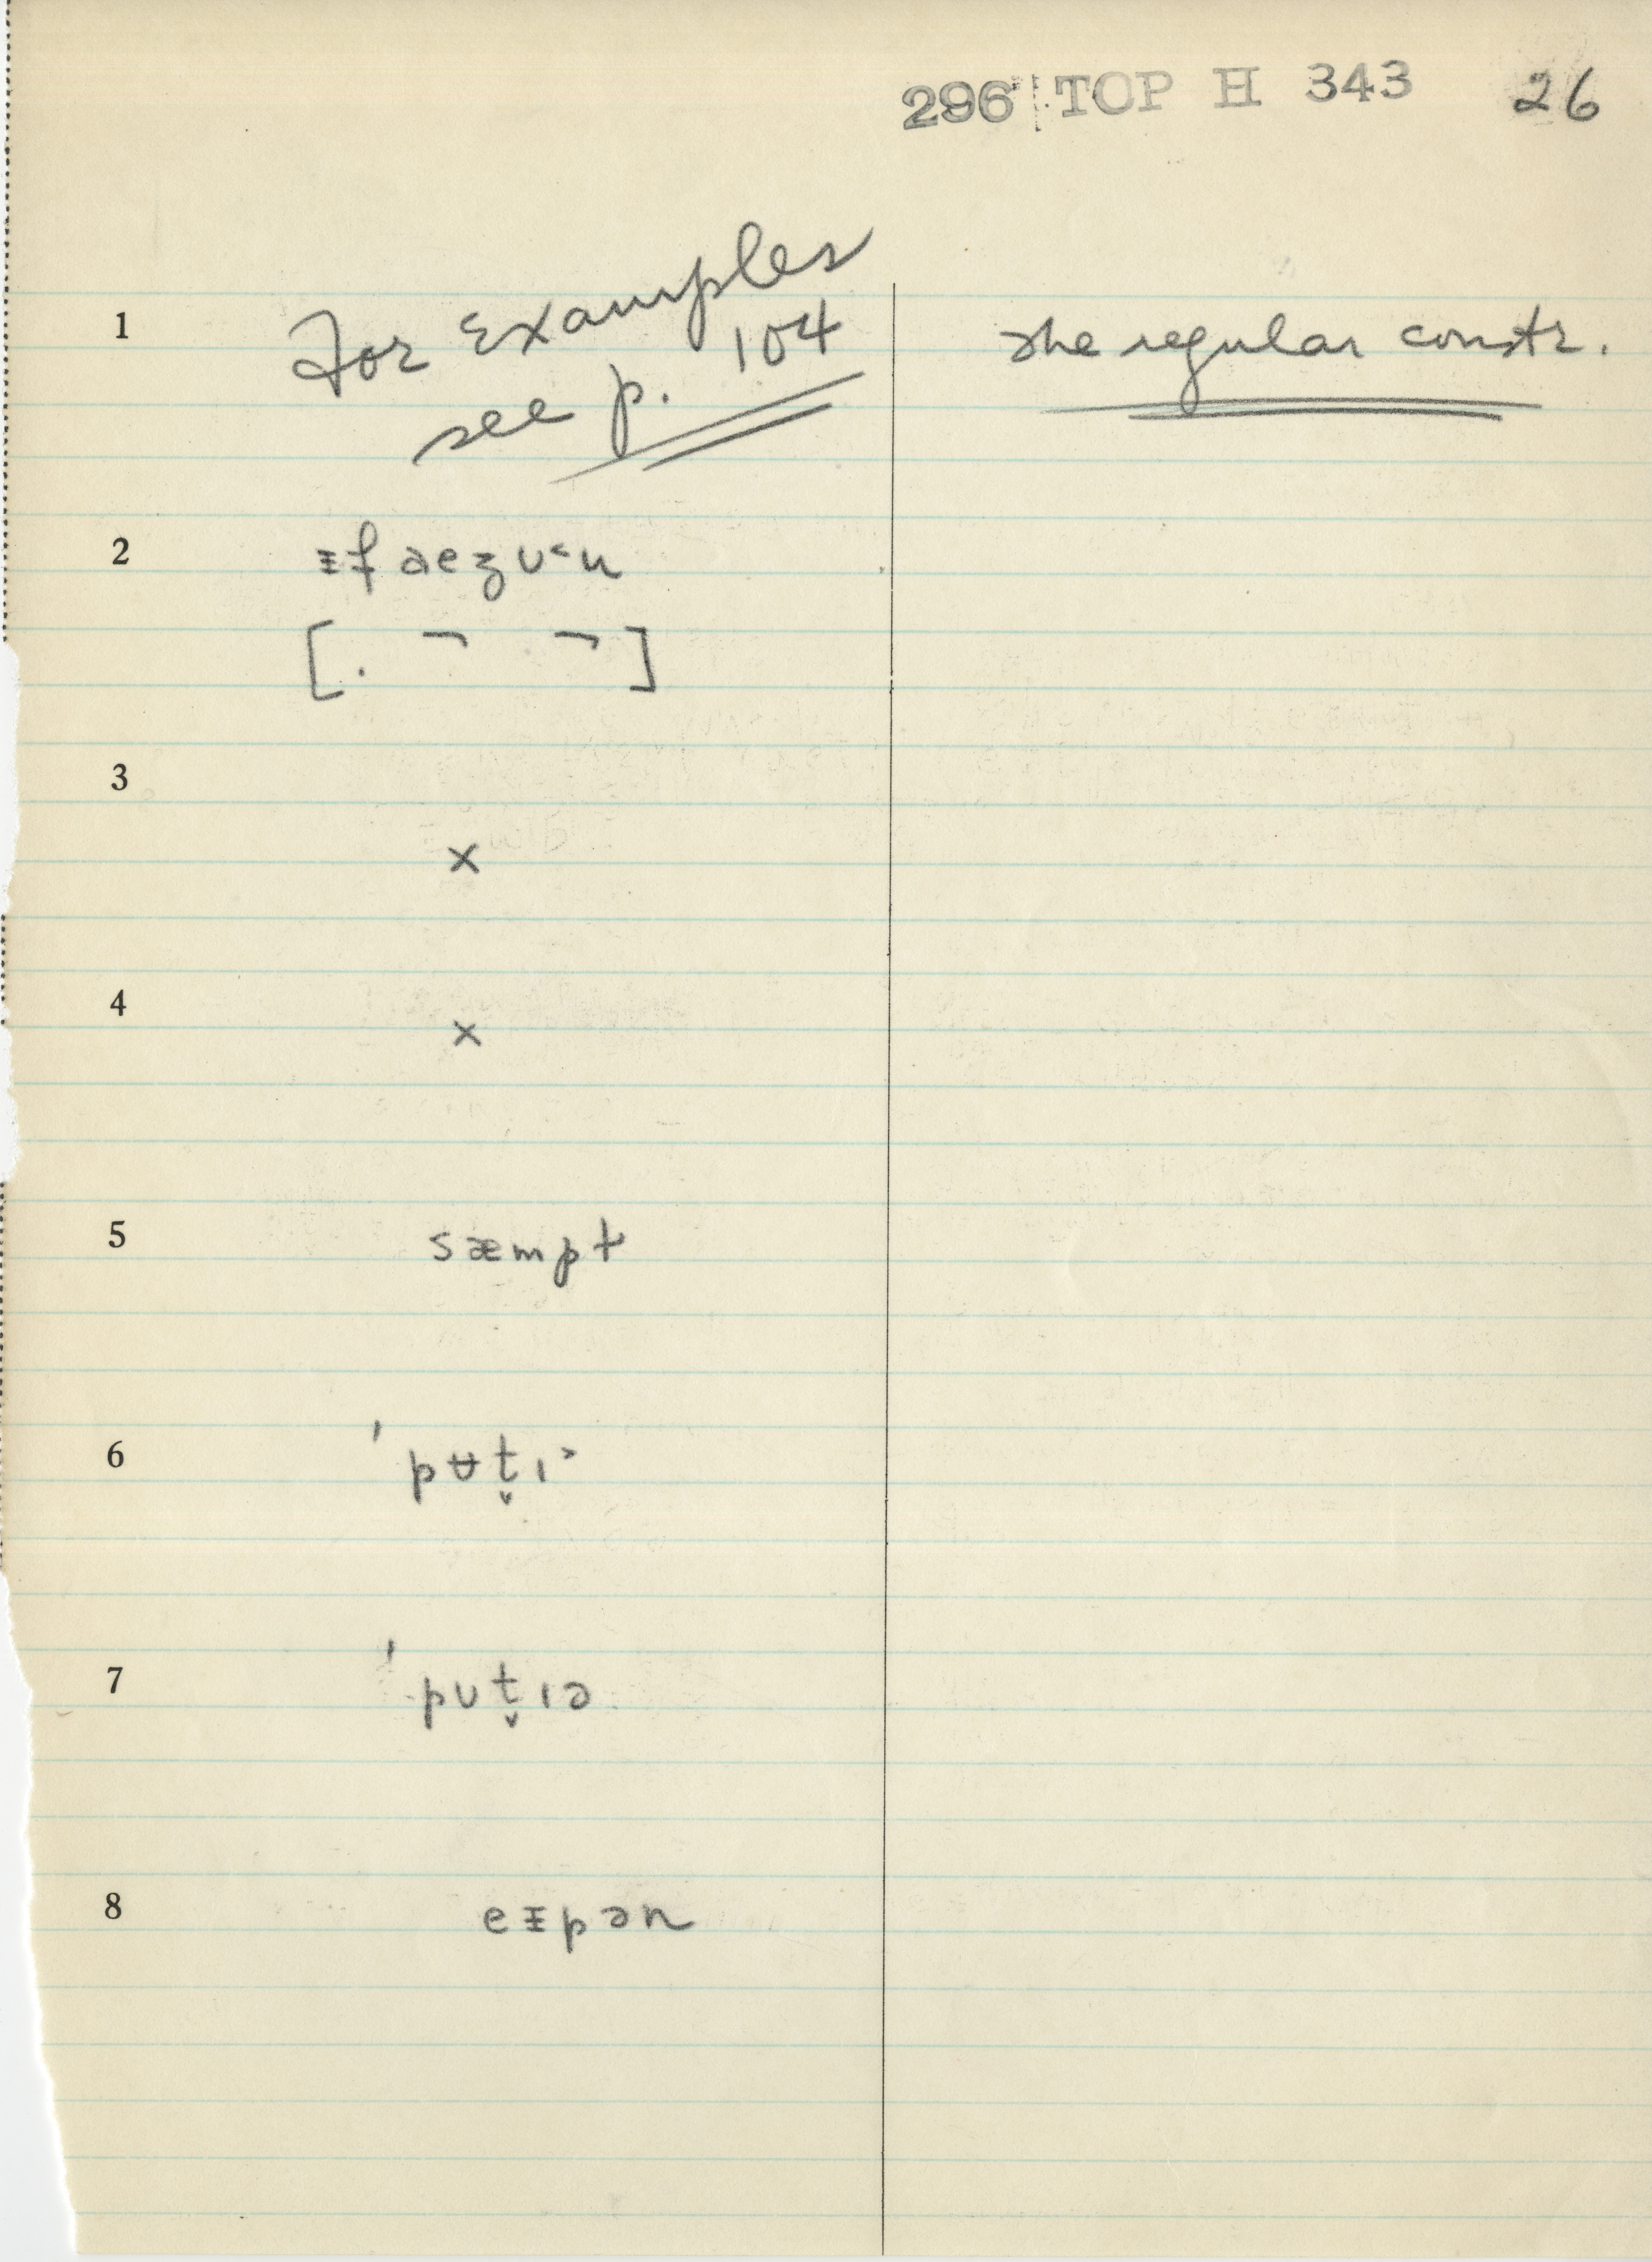 296 TOP H 343 26
1 For Examples see p. 104
The regular constr.
2 ᵻf aeʒʊ˂u
[. ¬ ¬]
3
×
4
×
5 sæmpt
6 ˈpʉt̬ɪ˃
7 ˈpʊt̬ɪə
8 eᵻpən